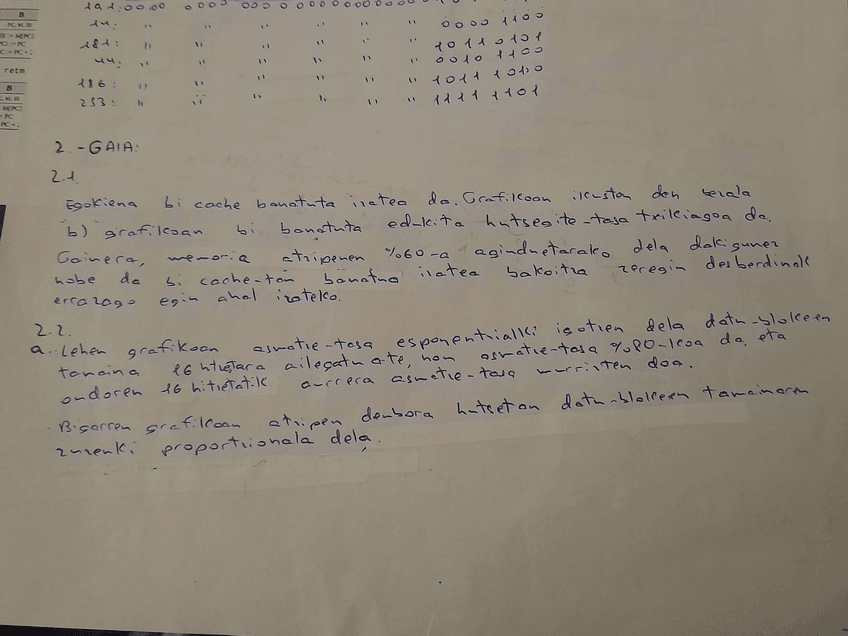 B
PC, M, IR
retm
B
181: 0000 0000 000 0 0000 0000 0000
14: " " " " " " 0000 1100
181: " " " " " " 1011 0101
44: " " " " " " 0010 1100
186: " " " " " " 1011 1010
253: " " " " " " 1111 1101
2.-GAIA:
2.1
Egokiena bi cache banatuta izatea da. Grafikoan ikusten den bezala
b) grafikoan bi banatuta edukita hutsegite-tasa txikiagoa da.
Gainera, memoria atzipenen %60-a aginduetarako dela dakigunez
hobe da bi cache-tan banatua izatea bakoitza zeregin desberdinak
errazago egin ahal izateko.
2.2.
a. Lehen grafikoan asmatze-tasa esponentzialki igotzen dela datu-blokeen
tamaina 16 hitzetara ailegatu arte, non asmatze-tasa %80-koa da, eta
ondoren 16 hitzetatik aurrera asmatze-tasa murrizten doa.
Bigarren grafikoan atzipen denbora hutsetan datu-blokeen tamainaren
zuzenki proportzionala dela.